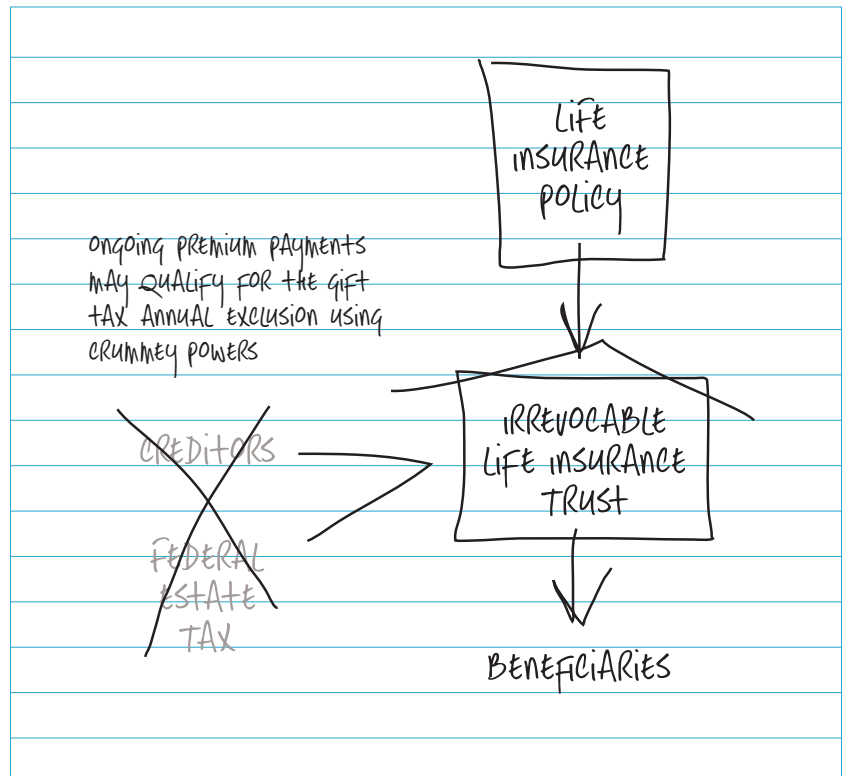 LIFE
INSURANCE
POLICY
ONGOING PREMIUM PAYMENTS
MAY QUALIFY FOR THE GIFT
TAX ANNUAL EXCLUSION USING
CRUMMEY POWERS
CREDITORS
FEDERAL
ESTATE
TAX
IRREVOCABLE
LIFE INSURANCE
TRUST
BENEFICIARIES